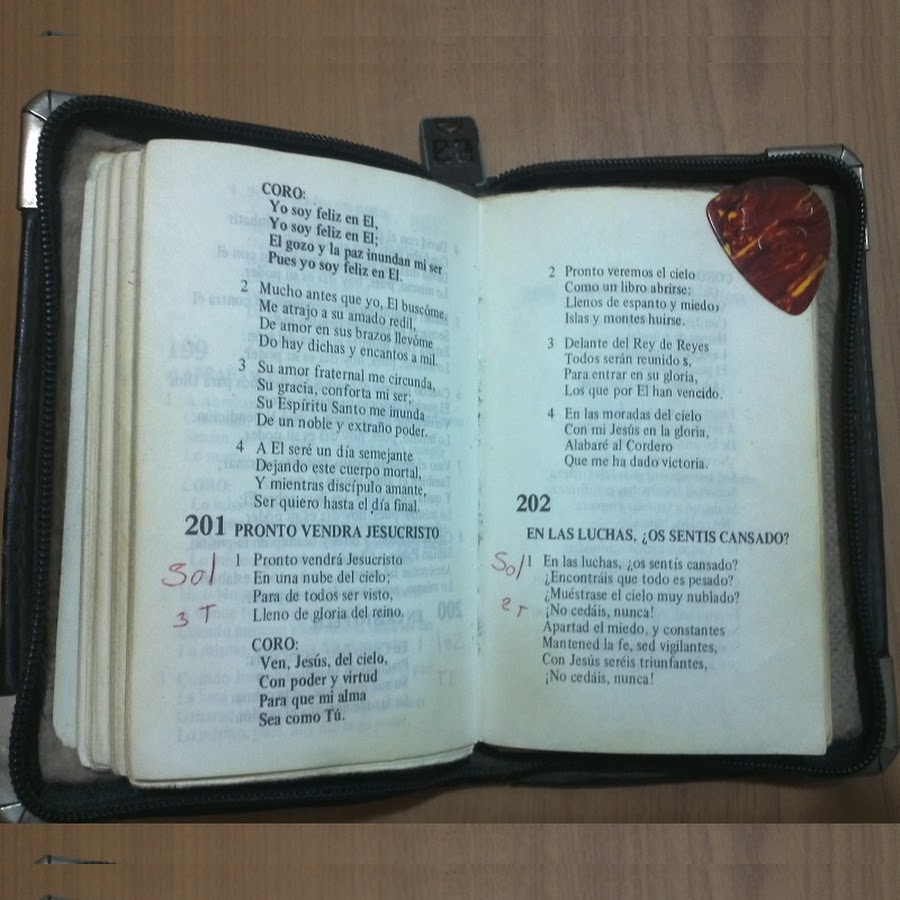 CORO:
Yo soy feliz en El,
Yo soy feliz en El;
El gozo y la paz inundan mi ser
Pues yo soy feliz en El.
2 Mucho antes que yo, El buscóme,
Me atrajo a su amado redil,
De amor en sus brazos llevóme
Do hay dichas y encantos a mil.
3 Su amor fraternal me circunda,
Su gracia, conforta mi ser;
Su Espíritu Santo me inunda
De un noble y extraño poder.
4 A El seré un día semejante
Dejando este cuerpo mortal,
Y mientras discípulo amante,
Ser quiero hasta el día final.
201 PRONTO VENDRA JESUCRISTO
Sol
3 T
1 Pronto vendrá Jesucristo
En una nube del cielo;
Para de todos ser visto,
Lleno de gloria del reino.
CORO:
Ven, Jesús, del cielo,
Con poder y virtud
Para que mi alma
Sea como Tú.
2 Pronto veremos el cielo
Como un libro abrirse;
Llenos de espanto y miedo;
Islas y montes huirse.
3 Delante del Rey de Reyes
Todos serán reunido s,
Para entrar en su gloria,
Los que por El han vencido.
4 En las moradas del cielo
Con mi Jesús en la gloria,
Alabaré al Cordero
Que me ha dado victoria.
202
EN LAS LUCHAS, ¿OS SENTIS CANSADO?
Sol
2 T
1 En las luchas, ¿os sentís cansado?
¿Encontráis que todo es pesado?
¿Muéstrase el cielo muy nublado?
¡No cedáis, nunca!
Apartad el miedo, y constantes
Mantened la fe, sed vigilantes,
Con Jesús seréis triunfantes,
¡No cedáis, nunca!